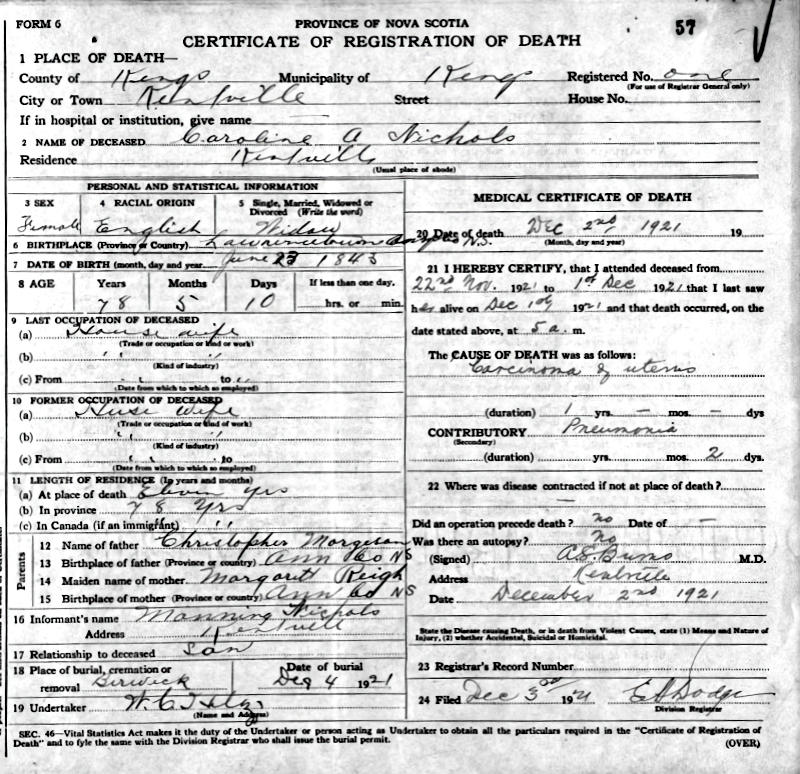 FORM 6
PROVINCE OF NOVA SCOTIA
57
CERTIFICATE OF REGISTRATION OF DEATH
1 PLACE OF DEATH—
County of Kings Municipality of Kings Registered No. one
(For use of Registrar General only)
City or Town Kentville Street House No.
If in hospital or institution, give name —
2 NAME OF DECEASED Caroline A Nichols
Residence Kentville
(Usual place of abode)
PERSONAL AND STATISTICAL INFORMATION
3 SEX 4 RACIAL ORIGIN 5 Single, Married, Widowed or Divorced (Write the word)
Female English Widow
6 BIRTHPLACE (Province or Country) Lawrencetown N.S.
7 DATE OF BIRTH (month, day and year) June 23 1843
8 AGE Years Months Days If less than one day,
78 5 10 hrs. or min.
9 LAST OCCUPATION OF DECEASED
(a) House wife
(Trade or occupation or kind of work)
(b) " "
(Kind of industry)
(c) From " to "
(Date from which to which so employed)
10 FORMER OCCUPATION OF DECEASED
(a) House wife
(Trade or occupation or kind of work)
(b) " "
(Kind of industry)
(c) From " " to
(Date from which to which so employed)
11 LENGTH OF RESIDENCE (In years and months)
(a) At place of death Eleven yrs
(b) In province 78 yrs
(c) In Canada (if an immigrant) " "
Parents
12 Name of father Christopher Margeson
13 Birthplace of father (Province or country) Ann Co NS
14 Maiden name of mother Margaret Reigh
15 Birthplace of mother (Province or country) Ann Co NS
16 Informant's name Manning Nichols
Address Kentville
17 Relationship to deceased Son
18 Place of burial, cremation or removal Berwick Date of burial Dec 4 1921
19 Undertaker W. C.
(Name and Address)
MEDICAL CERTIFICATE OF DEATH
20 Date of death Dec 2nd 1921 19
(Month, day and year)
21 I HEREBY CERTIFY, that I attended deceased from
22nd Nov. 1921 to 1st Dec 1921 that I last saw
her alive on Dec 1st 1921 and that death occurred, on the
date stated above, at 5 a. m.
The CAUSE OF DEATH was as follows:
Carcinoma of uterus
(duration) 1 yrs. — mos. — dys
CONTRIBUTORY Pneumonia
(Secondary)
(duration) yrs. mos. 2 dys.
22 Where was disease contracted if not at place of death?
—
Did an operation precede death? no Date of —
Was there an autopsy? no
(Signed) M.D.
Address Kentville
Date December 2nd 1921
State the Disease causing Death, or in death from Violent Causes, state (1) Means and Nature of
Injury, (2) whether Accidental, Suicidal or Homicidal.
23 Registrar's Record Number
24 Filed Dec 3rd 1921 Dodge
Division Registrar
SEC. 46—Vital Statistics Act makes it the duty of the Undertaker or person acting as Undertaker to obtain all the particulars required in the "Certificate of Registration of
Death" and to fyle the same with the Division Registrar who shall issue the burial permit.
(OVER)